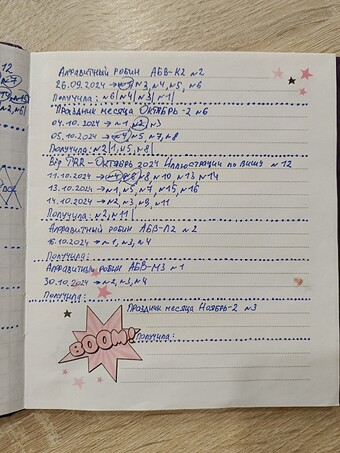 12
Алфавитный робин АБВ-К2 №2
26.09.2024 → №3, №4, №5, №6
Получила: №6|№4|№3|№1|
Праздник месяца Октябрь-2 №6
04.10.2024 → №1, №2, №3
05.10.2024 → №4, №5, №7, №8
Получила: №2|1, №5, №8|
ВГр TAR-Октябрь 2024 Иллюстрации по вишу №12
11.10.2024 → №8, №10, №13 №14
13.10.2024 → №1, №5, №7, №15, №16
14.10.2024 → №2, №3, №9, №11
Получила: №2, №11|
Алфавитный робин АБВ-Л2 №2
16.10.2024 → №1, №3, №4
Получила:
Алфавитный робин АБВ-М3 №1
30.10.2024 → №2, №3, №4
Получила:
Праздник месяца Ноябрь-2 №3
BOOM!
Получила: